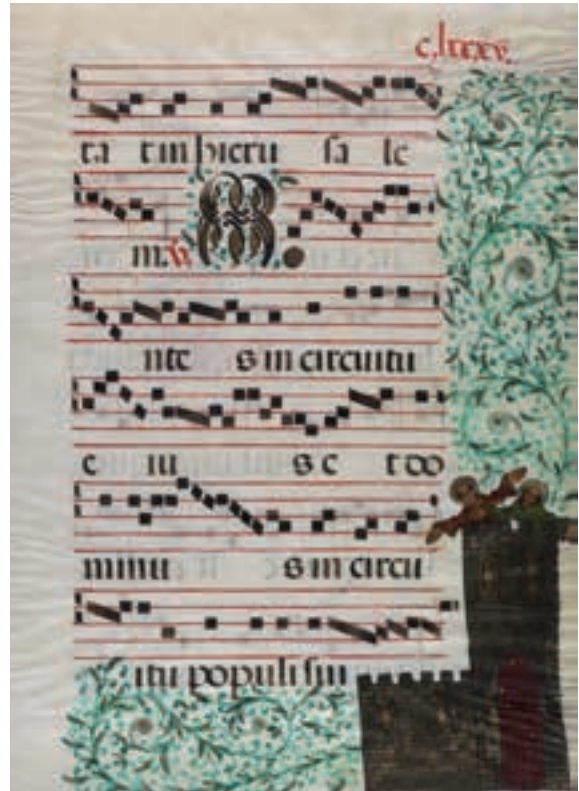 c.lxxxv.
ta t in hieru sa le
m. v. M
nte s in circuitu
e iu s e t do
minu s in circu
itu populi sui